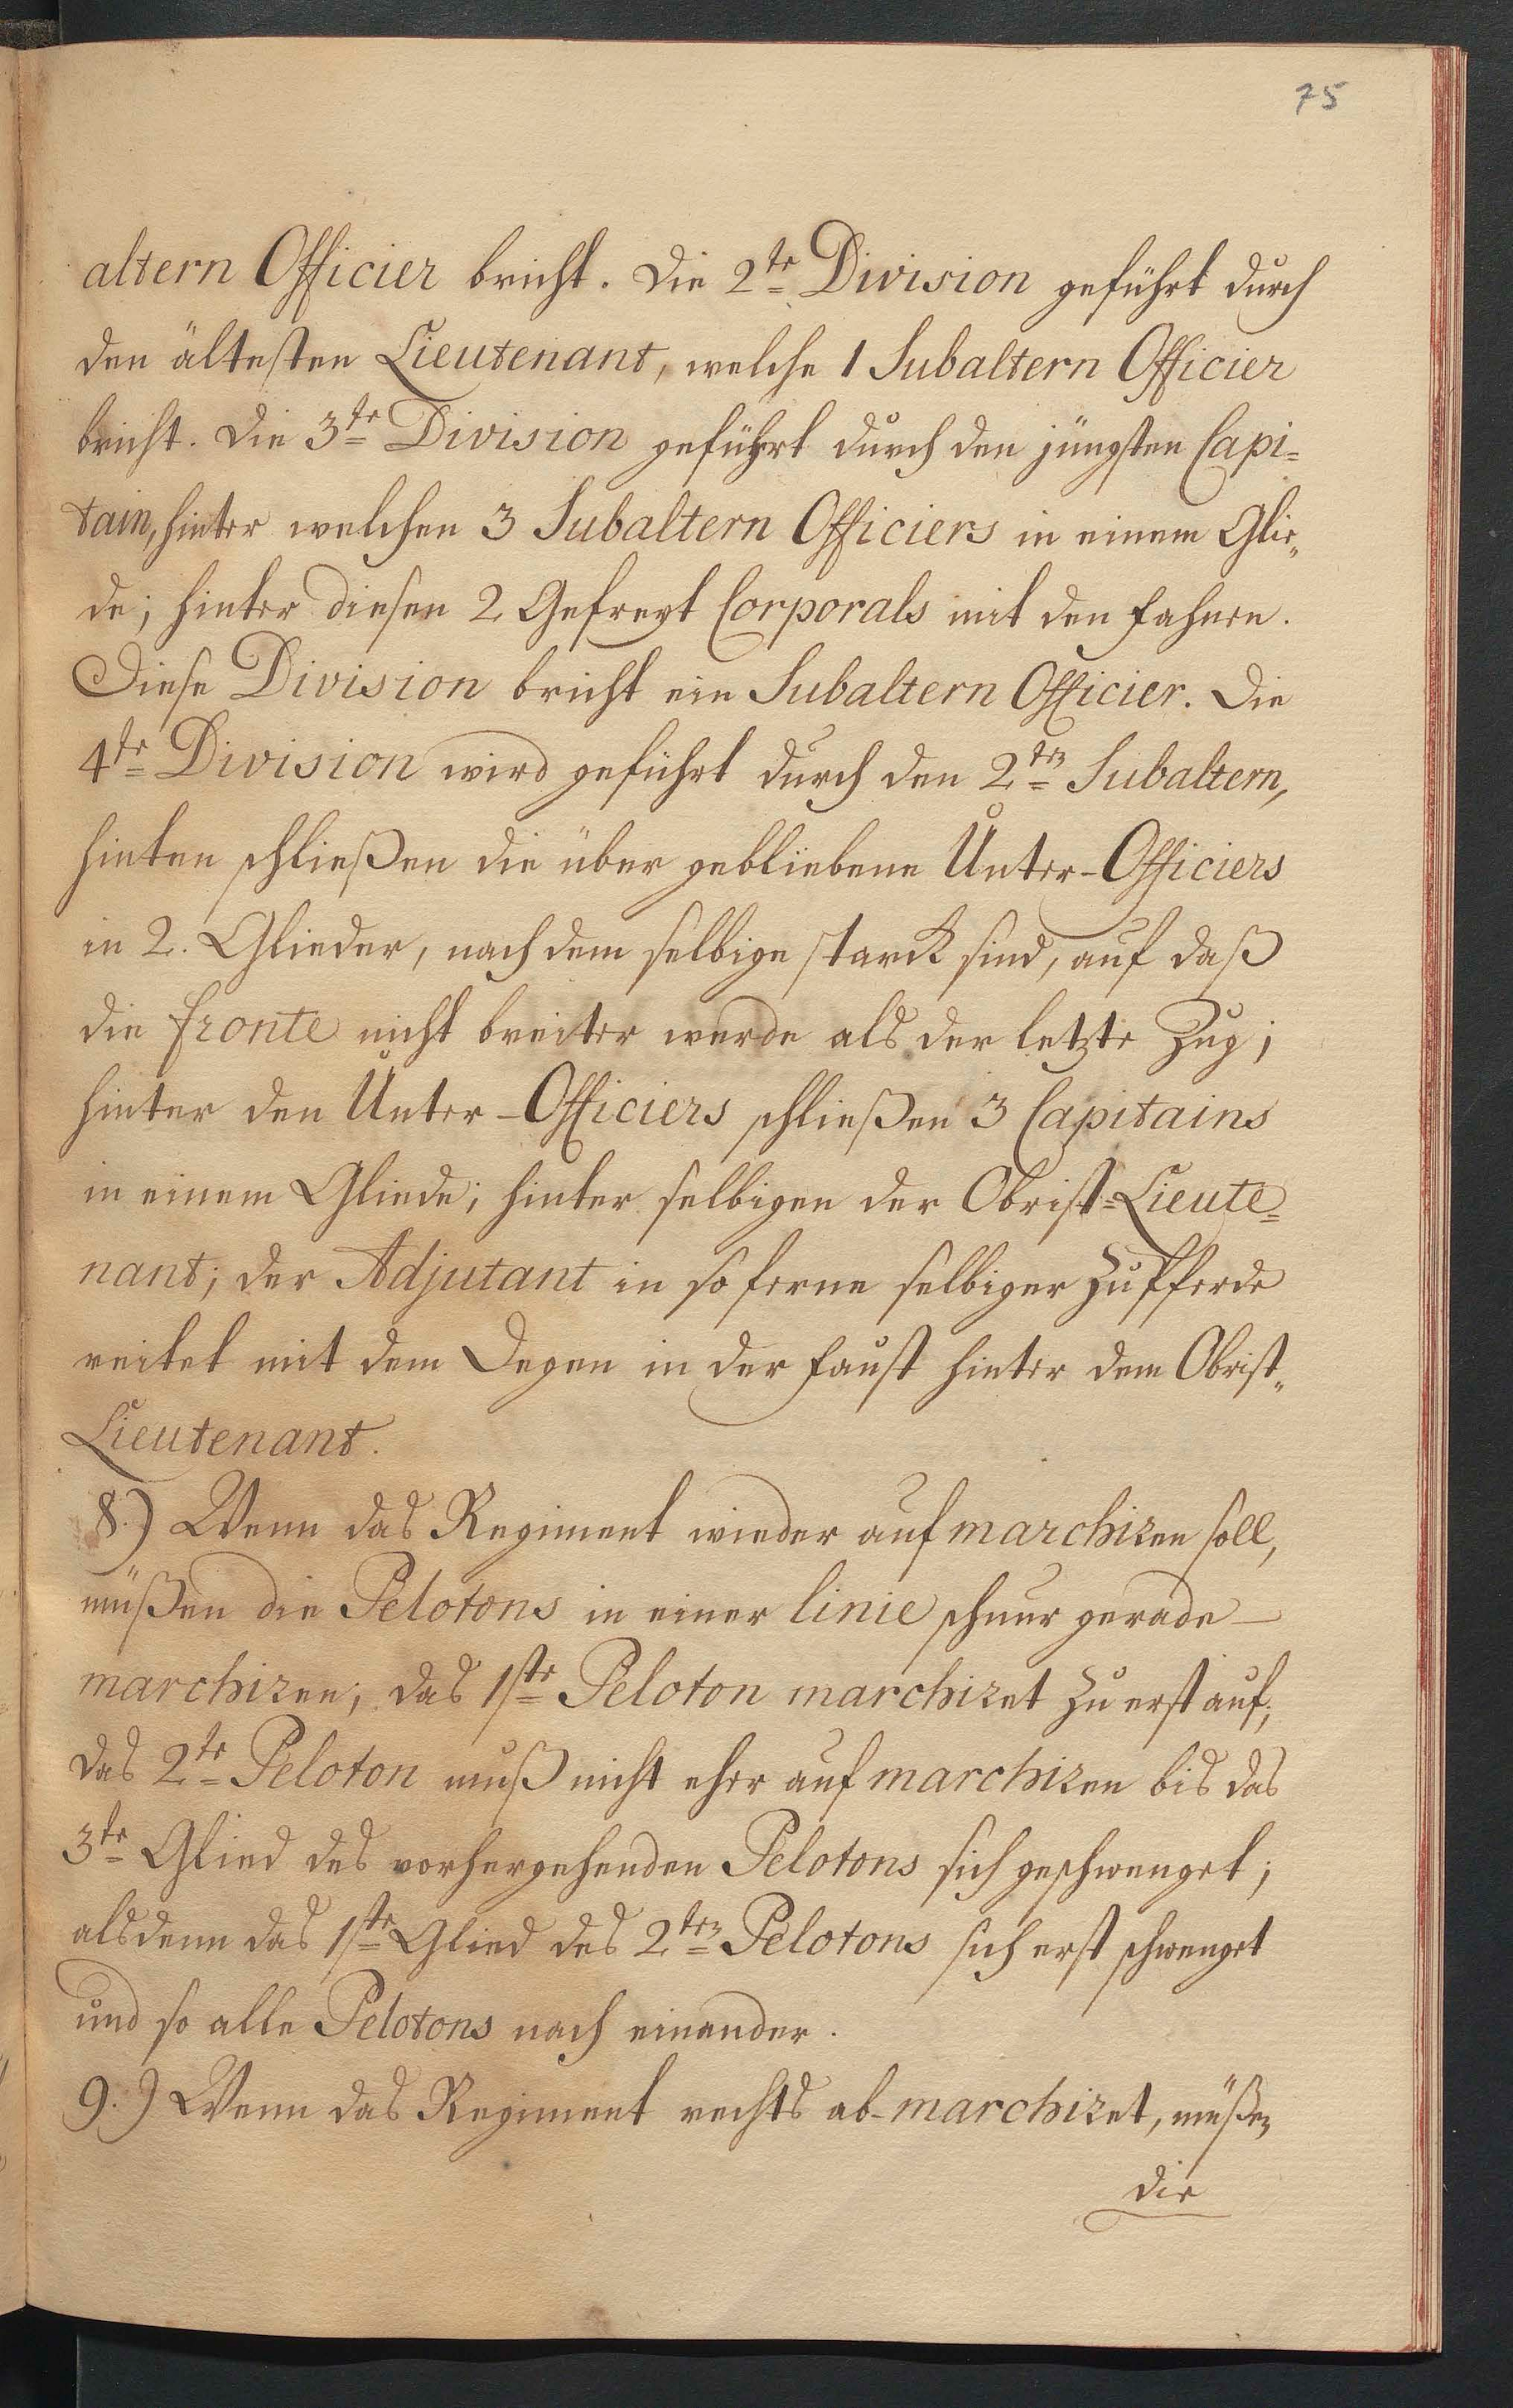 75
altern Officier bricht. Die 2te Division geführt durch
den ältesten Lieutenant, welche 1 Subaltern Officier
bricht. Die 3te Division geführt durch den jüngsten Capi=
tain, hinter welchen 3 Subaltern Officiers in einem Glie„
de; hinter diesen 2 Gefreyt Corporals mit den Fahnen.
Diese Division bricht ein Subaltern Officier. Die
4te Division wird geführt durch den 2ten Subaltern,
hinten schließen die über gebliebene Unter-Officiers
in 2. Glieder, nach dem selbige starck sind, auf daß
die fronte nicht breiter werde als der letzte Zug;
hinter den Unter-Officiers schließen 3 Capitains
in einem Gliede; hinter selbigen der Obrist=Lieute=
nant; der Adjutant in so ferne selbiger zu Pferde
reitet mit dem Degen in der Faust hinter dem Obrist„
Lieutenant.
8.) Wenn das Regiment wieder auf marchiren soll,
müßen die Pelotons in einer linie schnur gerade
marchiren; das 1ste Peloton marchiret zu erst auf;
das 2te Peloton muß nicht eher auf marchiren bis das
3te Glied des vorhergehenden Pelotons sich geschwenget;
alsdenn das 1ste Glied des 2ten Pelotons sich erst schwenget
und so alle Pelotons nach einander.
9.) Wenn das Regiment rechts ab-marchiret, müßen
die